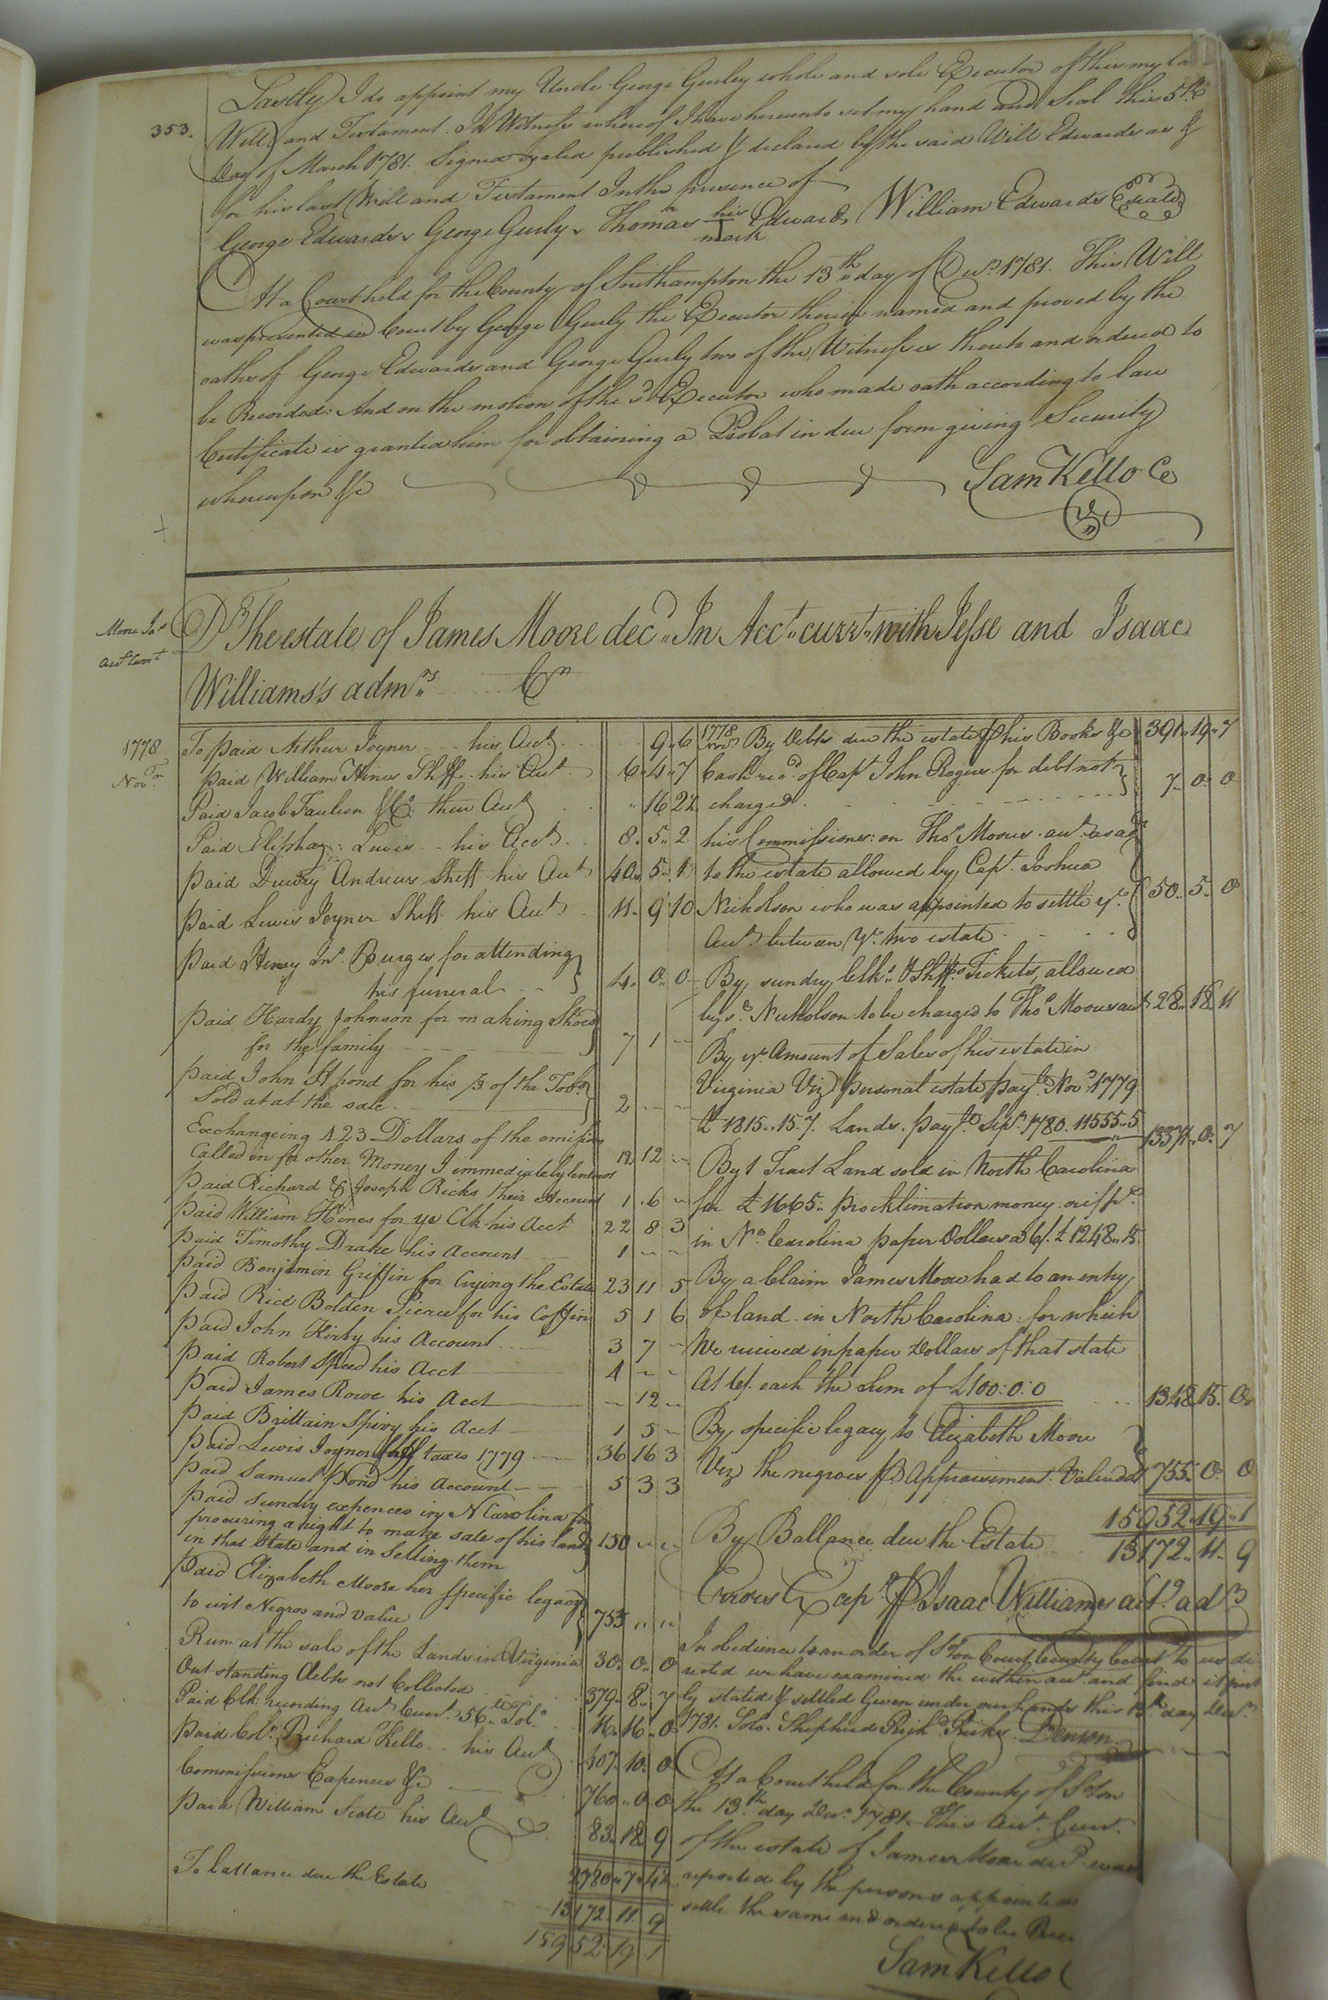 353.
Lastly I do appoint my Uncle George Gurley whole and sole Executor of this my la
Will and Testament. In Witness whereof I have hereunto set my hand and Seal this 5th
Day of March 1781. Signed sealed published & declared by the said Will Edwards as &
for his last Will and Testament In the presence of
George Edwards, George Gurly, Thomas his mark Edwards William Edwards Seald
At a Court held for the County of Southampton the 13th day of Decr. 1781. This Will
was presented in Court by George Gurly the Executor therein named and proved by the
oaths of George Edwards and George Gurly two of the Witnesses thereto and ordered to
be Recorded. And on the motion of the sd. Executor who made oath according to law
Certificate is granted him for obtaining a Probat in due form giving Security
whereupon &c
Sam Kello Cc
Moore Jas
Acct Curnt
Dr. The estate of James Moore decd. In Acct. currt. with Jesse and Isaac
Williams's admrs. Cr
1778
Novr.
To paid Arthur Joyner his Acct 9 6
paid William Hines Shff his Acct 6 4 7
Paid Jacob Faulcon & Co. their Acct 16 2½
Paid Elisha Lewis his Acct 8 5 2
paid Drewry Andrews Shff his Acct 40 5 1
paid Lewis Joyner Shff his Acct 11 9 10
paid Henry Jno. Burges for attending
his funeral 4 0 0
paid Hardy Johnson for making Shoes
for the family 7 1
paid John Pond for his ⅓ of the Tobo
Sold at at the sale 2
Exchangeing 423 Dollars of the emission
Called in for other Money I immediately lent out 12 12
paid Richard & Joseph Ricks their Account 1 6
paid William Hines for ye Clk his Acct 22 8 3
paid Timothy Drake his Account 1
paid Benjamin Griffin for Crying the Estate 23 11 5
paid Rice Bolden Pierce for his Coffin 5 1 6
paid John Kirby his Account 3 7
paid Robert Speed his Acct 4
paid James Rowe his Acct 12
paid Brittain Spivy his Acct 1 5
paid Lewis Joyner Shff taxes 1779 36 16 3
paid Samuel Pond his Account 5 3 3
paid Sundry expences in N Carolina for
procuring a right to make sale of his land
in that State and in Selling them 150
paid Elizabeth Moore her Specific legacy
to wit Negros and value 755
Rum at the sale of the Lands in Virginia 30 0 0
Out standing Debts not Collected 379 8 7
Paid Clk recording Acct Curt. 56 lb Tobo. 16 16 0
paid Colo. Richard Kello his Acct 107 10 0
Commissions Expences &c 760 0 0
paid William Scott his Acct 83 18 9
2780 7 4½
To ballance due the Estate 13172 11 9
15952 19 1
1778
Novr. By Debts due the estate of his Books &c 391 19 7
Cash recd. of Capt John Rogers for debt not
charged 7 0 0
his Commissions on Thos. Moores acct. as adr
to the estate allowed by Capt. Joshua
Nicholson who was appointed to settle ye.
Acct. between ye. two estate 50 5 0
By sundry Clks. & Shffs Tickets, allowed
by sd. Nicholson to be charged to Thos Moores acct 28 18 11
By ye. Amount of Sales of his estate in
Virginia Viz personal estate payle. Novr. 1779
£ 1815..15..7. Lands. payle. Sepr. 1780. 11555..5 13371 0 7
By 1 Tract Land sold in North Carolina
for £ 1665.. procklimation money
in No. Carolina paper Dollars a 6/. £ 1248..15.
By a Claim James Moore had to an entry
of land in North Carolina for which
We recieved in paper Dollars of that state
At 6/. each the Sum of £100:0:0 1348 15 0
By specific legacy to Elizabeth Moore
Viz the negroes pr Appraisement Valued at 755 0 0
15952 19 1
By Ballance due the Estate 13172 11 9
Errors Excepd. pr Isaac Williams actg. adr
In obedience to an order of Soton Court County Court to us di
rected we have examined the within acct. and find it just
ly stated & settled Given under our hands this 12th day Decr.
1781. Solo. Shepherd Richd. Ricks. Denson
At a Court held for the County of Soton
the 13th day Decr. 1781. This Acct. Curr.
of the estate of James Moore decd. was
reported by the persons appointed
settle the same and ordered to be Reco
Sam Kello C